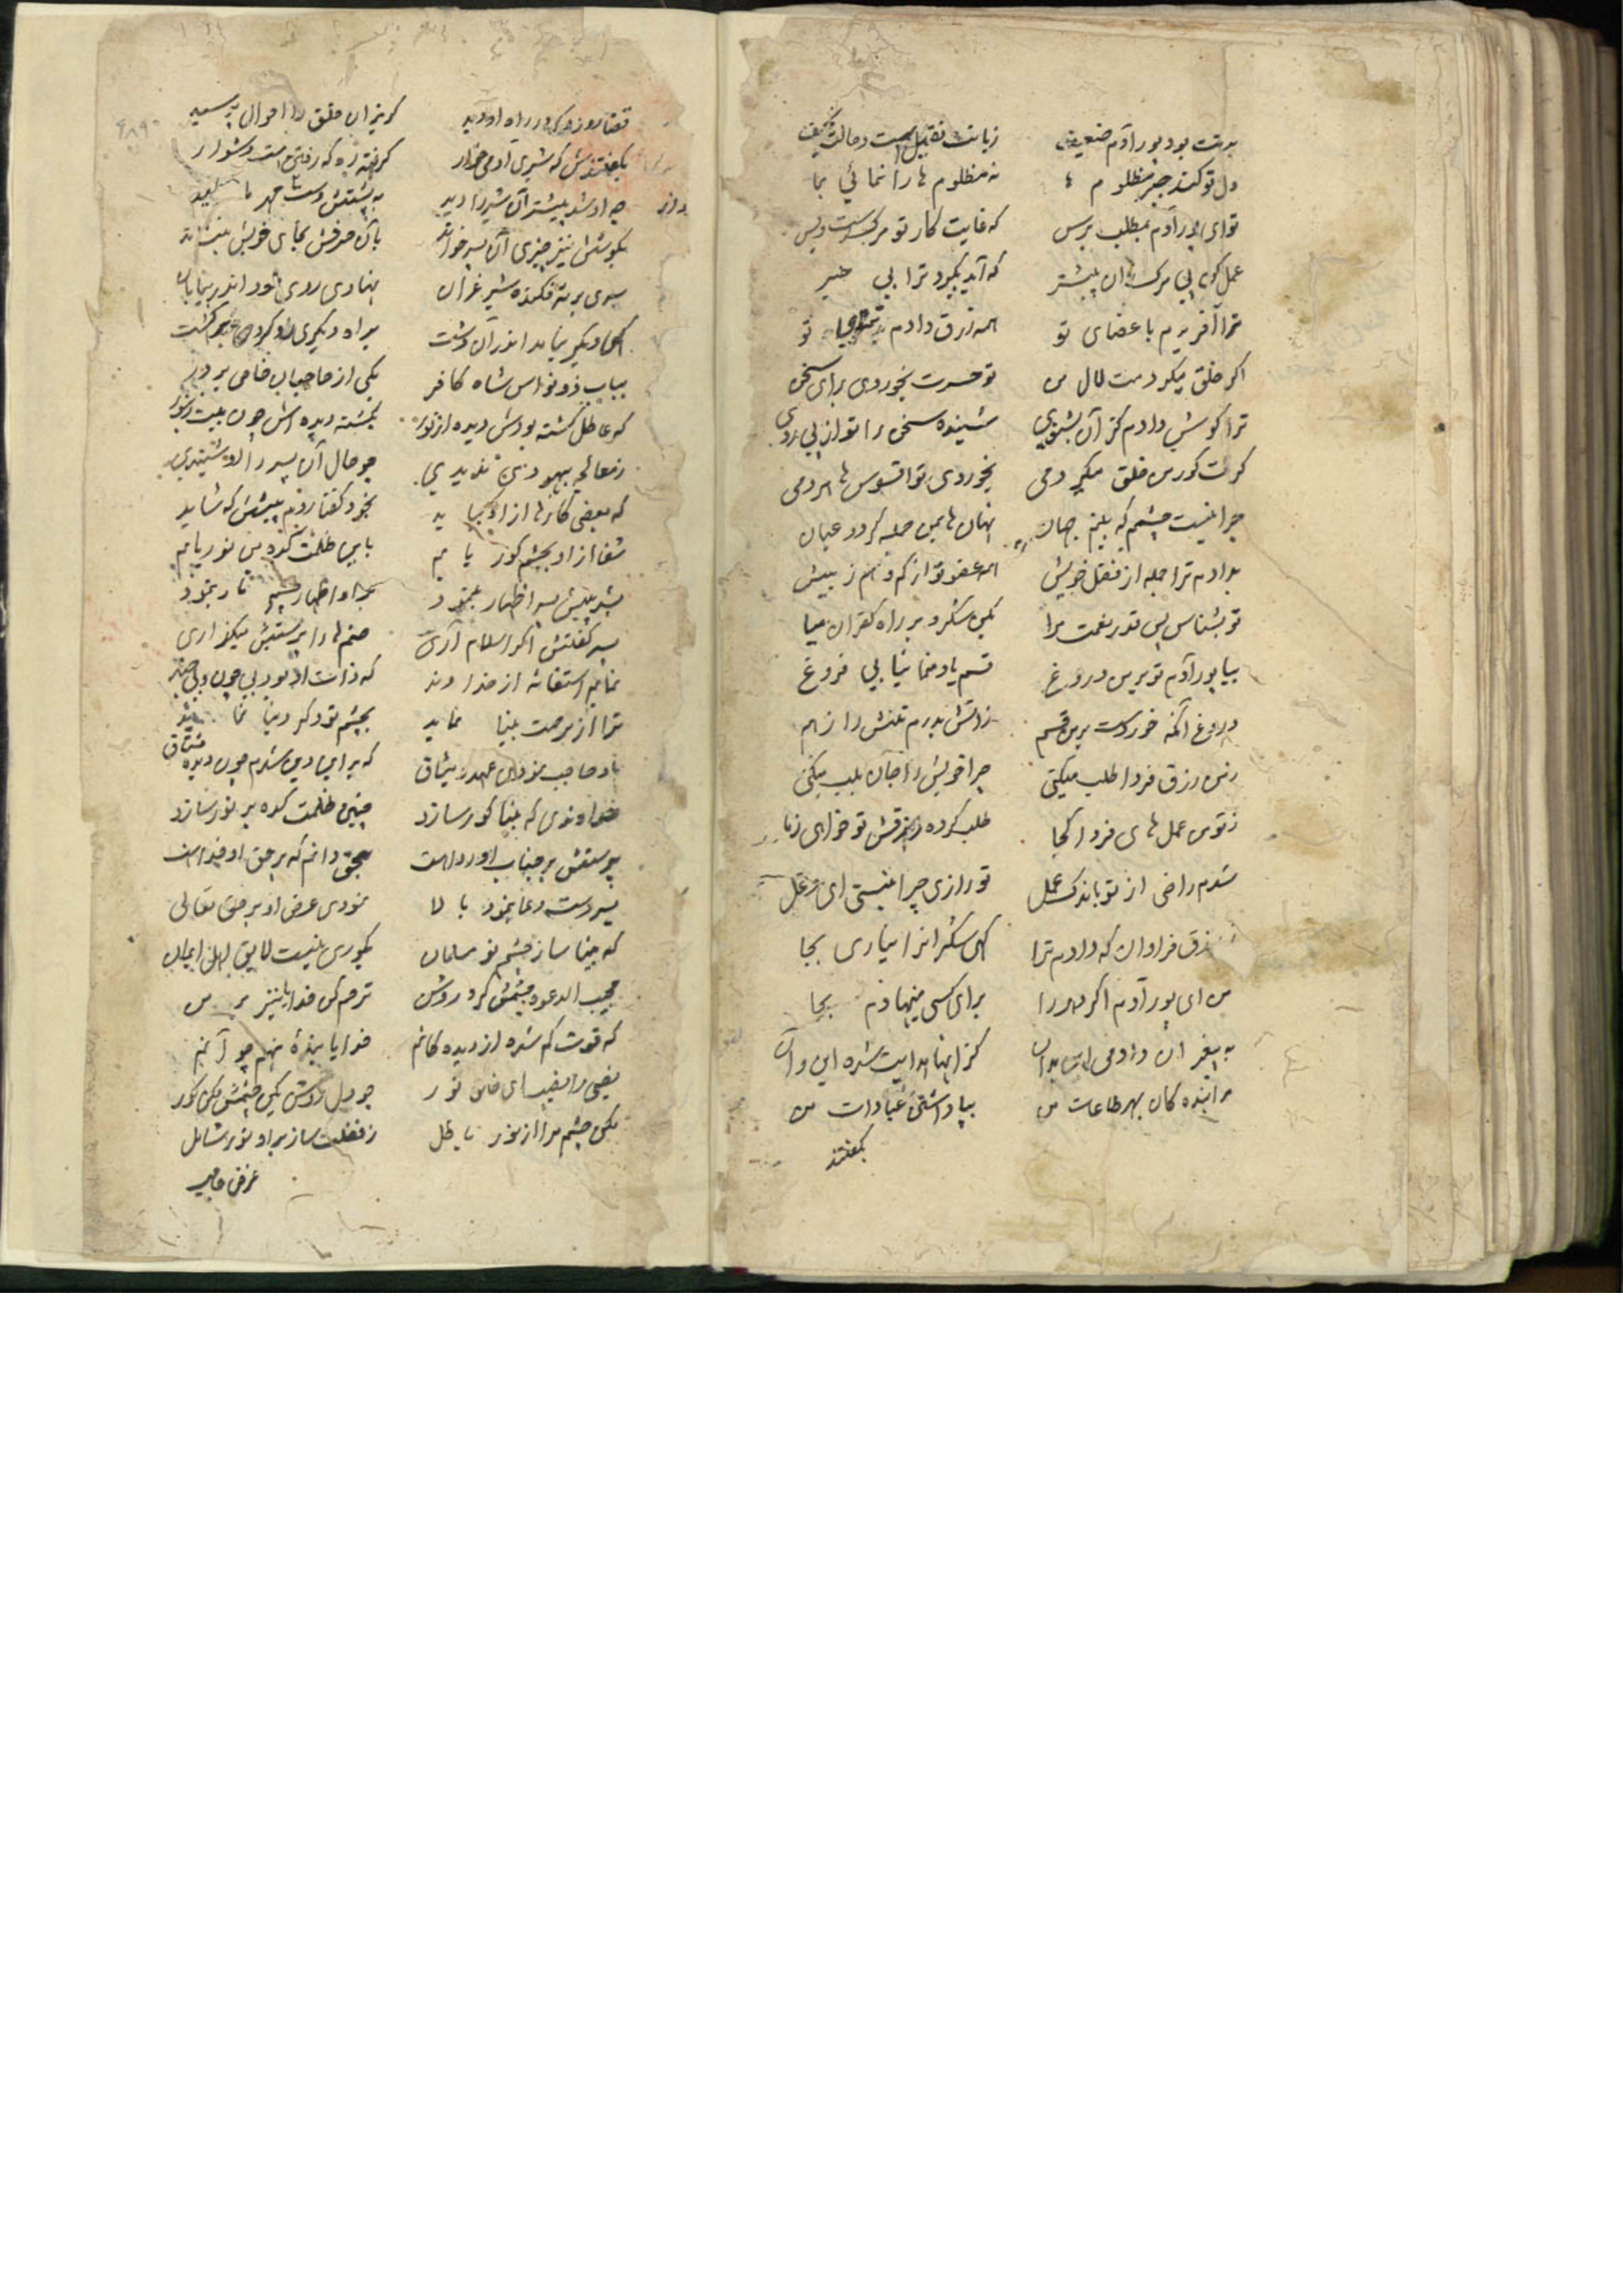 بدنت بود پور آدم ضعیف زبانت ثقیل است و حالت
دل تو کند جبر مظلوم ها نه مظلوم ها را نمائی بما
تو ای پور آدم مطلب برس که غایت کار تو مرگست و بس
عمل کن پی مرگ زان پیشتر که آید بگیرد ترا بی خبر
ترا آفریدم با عضای تو همه رزق دادم تو
اگر خلق میکردمت لال من تو حسرت بخوردی برای سخن
ترا گوش دادم کز آن بشنوی شنیده سخن را تو از پی روی
گرت کور من خلق میکردمی بخوردی تو افسوس ها هردمی
چرا نیست چشمم که بینم جهان نهان های من جمله گردد عیان
بدادم ترا جمله از فضل خویش همه عضو تو از کم و هم ز بیش
تو بشناس پس قدر نعمت مرا بکن شکر و بر راه کفران میا
بیا پور آدم تو برمن دروغ قسم یاد منما نیابی فروغ
دروغ آنکه خوردست برمن قسم ز آتش بدرم تنش را زهم
زمن رزق فردا طلب میکنی چرا خویش را جان بلب میکنی
ز تو من عمل های فردا کجا طلب کرده تو خواهی ز ما
شدم راضی از تو باندک عمل تو رازی چرا نیستی ای دغل
رزق فراوان که دادم ترا کهی شکر آنرا نیاری بجا
من ای پور آدم اگر را برای کسی مینهادم بجا
به پیغمبران دادمی کز اینها هدایت شده این و آن
مر آینده کان بهر طاعات من بپاداشتی عبادات من
بگفتند
قضا روزی که در راه او دید گریزان خلق را احوال پرسید
بگفتندش که شیری آدمی خوار گرفته ره که رفتن هست دشوار
چه او شد پیشتر آن شیر را دید به پشتش دست مهر مالید
بگوشش نیز چیزی آن پسر خواند بآن حرفش بجای خویش بنشاند
سری بر ته فکنده شیر غران نهادی روی خود اندر بیابان
کسی دیگر نیامد اندر آن دشت براه دیگری رو کرد برگشت
بباب ذونواس شاه کافر یکی از حاجبان خاص بر در
که عاطل گشته بودش دیده از نور نشسته دیده اش چون بیت
ز معالجه بهبودی ندیدی چو حال آن پسر را او شنیدی
که بعضی کارها از او بیاید بخود گفتا روم پیشش که شاید
شفا از او بچشم کور یابم باین ظلمت نور یابم
بشد پیش پسر اظهار بنمود بر او اظهار چشم تار بنمود
پسر گفتش اگر اسلام آری صنم ها را پرستش میگذاری
نمایم استغاثه از خداوند که ذات او بود بی چون و بی چند
ترا از مرحمت بینا نماید بچشم تو دگر دنیا نماید
باو حاجب نمودی عهد و میثاق که بر این دین شدم چون دیده مشتاق
خداوندی که بینا کور سازد چنین ظلمت کده پر نور سازد
پرستش بر جناب او رواست بحق دانم که بر حق او خداست
پسر دست دعا بنمود بالا نمودی عرض او بر حق تعالی
که بینا ساز چشم نو مسلمان بکوری نیست لایق اهل ایمان
مجیب الدعوه چشمش کرد روشن ترحم کن خدایا نیز بر من
که قوت کم شده از دیده کانم خدایا بنده چو آنم
بفیض ای خالق نور چو دل روشن کن چشمش مکن کور
مکن چشم مرا از نور باطل ز فضلت ساز بر او نور شامل
غرض حاجب